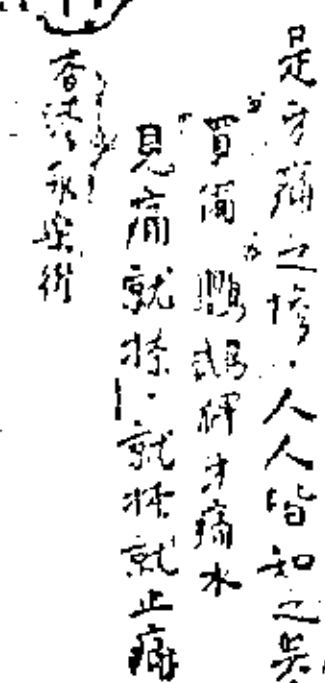 是牙痛之慘．人人皆知之吳
買 鸚鵡 牙痛水
見痛就搽．就搽就止痛
香港永樂街